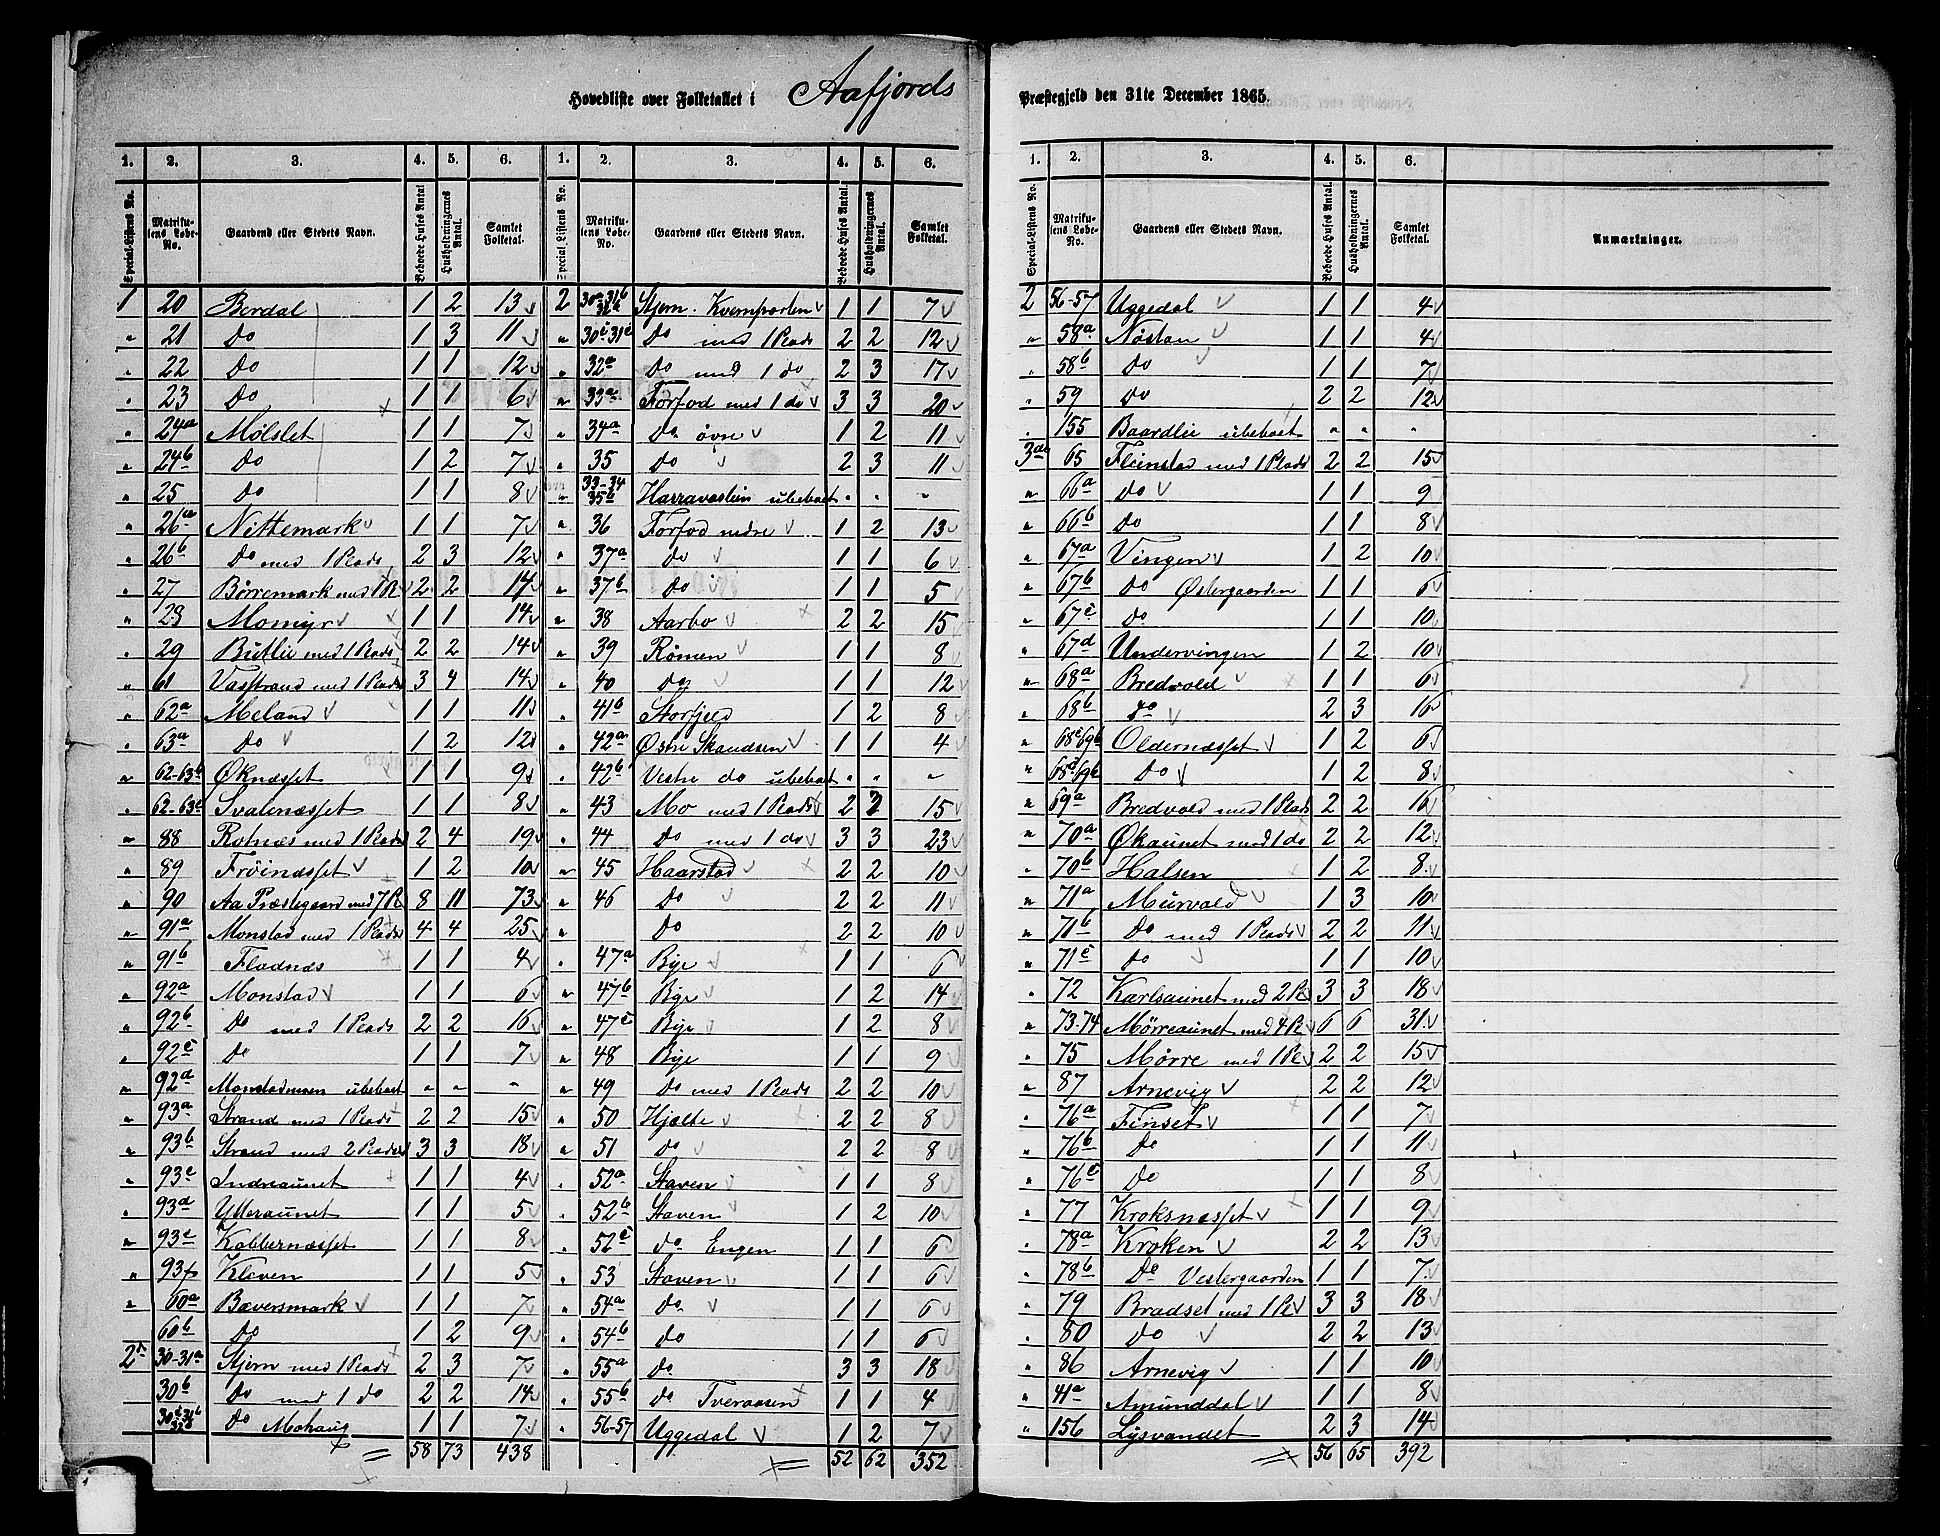 Hovedliste over Folketallet i Aafjords
1. 2. 3. 4. 5. 6. 1. 2. 3. 4. 5. 6.
Special-Listens No. Matrikulens Løbe-No. Gaardens eller Stedets Navn. Beboede Huses Antal. Husholdningernes Antal. Samlet Folketal. Special-Listens No. Matrikulens Løbe-No. Gaardens eller Stedets Navn. Beboede Huses Antal. Husholdningernes Antal. Samlet Folketal.
1 20 Berdal 1 2 13
" 21 Do 1 3 11
" 22 Do 1 1 12
" 23 Do 1 1 6
" 24a Mølslet 1 1 7
" 24b Do 1 2 7
" 25 Do 1 1 8
" 26a Nittemark 1 1 7
" 26b Do med 1 Plads 2 3 12
" 27 Børremark med 1 Pl 2 2 14
" 28 Momyr 1 1 14
" 29 Butlie med 1 Plads 2 2 14
" 61 Vasstrand med 1 Plads 3 4 14
" 62a Meland 1 1 11
" 63a Do 1 2 12
" 62-63b Øknæsset 1 1 9
" 62-63c Svalenæsset 1 1 8
" 88 Rotnæs med 1 Plads 2 4 19
" 89 Frøinæsset 1 2 10
" 90 Aa Præstegaard med 7 Pl 8 11 73
" 91a Monstad med 1 Plads 4 4 25
" 91b Fladnæs 1 1 4
" 92a Monstad 1 1 6
" 92b Do med 1 Plads 2 2 16
" 92c Do 1 1 7
" 92d Monstadmoen ubeboet " " "
" 93a Strand med 1 Plads 2 2 15
" 93b Strand med 2 Pladse 3 3 18
" 93c Indreaunet 1 1 4
" 93d Ytteraunet 1 1 5
" 93e Kobbernæsset 1 1 8
" 93f Kleven 1 1 5
" 60a Bæversmark 1 1 7
60b Do 1 2 9
2 30-31a Stjern med 1 Plads 2 3 7
30b Do med 1 do 2 2 14
Do Mohaug 1 1 7
58 73 438
2 Stjern. Kvernporten 1 1 7
" 30c-31c Do med 1 Plads 2 2 12
" 32a Do med 1 do 2 3 17
" 33a Forfod med 1 do 3 3 20
" 34a Do øvre 1 2 11
" 35 Do 2 3 11
" 33-34 35b Harravaslien ubeboet " " "
" 36 Forfod nedre 1 2 13
" 37a Do 1 1 6
" 37b Do 1 1 5
" 38 Aarbo 2 2 15
" 39 Rømen 1 1 8
" 40 Do 1 1 12
" 41b Storfjeld 1 2 8
" 42a Østre Skandsen 1 1 4
" 42b Vestre do ubeboet " " "
" 43 Mo med 1 Plads 2 15
" 44 Do med 1 do 3 3 23
" 45 Haarstad 2 2 10
" 46 Do 2 2 11
" Do 2 2 10
" 47a Bye 1 1 6
" 47b Bye 1 2 14
" 47c Bye 1 2 8
" 48 Bye 1 1 9
" 49 Do med 1 Plads 2 2 10
" 50 Hjelte 2 2 8
" 51 Do 2 2 8
" 52a Staven 1 1 8
" 52b Staven 1 2 10
" 52c do Engen 1 1 6
" 53 Staven 1 1 6
" 54a Do 1 1 6
" 54b Do 1 1 6
" 55a Do 3 3 18
" 55b Do Tveraasen 1 1 4
" 56-57 Uggedal 1 2 7
52 62 352
Præstegjeld den 31te December 1865.
1. 2. 3. 4. 5. 6.
Special-Listens No. Matrikulens Løbe-No. Gaardens eller Stedets Navn. Beboede Huses Antal. Husholdningernes Antal. Samlet Folketal. Anmærkninger.
2 56-57 Uggedal 1 1 4
" 58a Nøstan 1 1 4
" 58b Do 1 1 7
" 59 Do 2 2 12
" 155 Baardlie ubeboet " " "
3de 65 Fleinstad med 1 Plads 2 2 15
" 66a Do 1 1 9
" 66b Do 1 1 8
" 67a Vingen 1 2 10
" 67b Do Østergaarden 1 1 6
" 67c Do 1 1 10
" 67d Undervingen 1 2 10
" 68a Bredvold 1 1 6
" 68b Do 2 3 16
" 68c 69b Oldernæsset 1 2 6
" 68d 69b Do 1 2 8
" 69a Bredvold med 1 Plads 2 2 16
" 70a Økaunet med 1 do 2 2 12
" 70b Halsen 1 2 8
" 71a Murvold 1 3 10
" 71b Do med 1 Plads 2 2 11
" 71c Do 1 1 10
" 72 Karlsaunet med 2 Pl 3 3 18
" 73-74 Mørreaunet med 4 Pl 6 6 31
" 75 Mørre med 1 Pl 2 2 15
" 87 Arnevig 2 2 12
" 76a Finset 1 1 7
" 76b Do 1 1 11
" 76c Do 1 1 8
" 77 Kroksnæsset 1 1 9
" 78a Kroken 2 2 13
" 78b Do Vestergaarden 1 1 7
" 79 Bradset med 1 Pl 3 3 18
" 80 Do 2 2 13
" 86 Arnevig 1 1 10
" 41a Amunddal 1 1 8
" 156 Lysvandet 2 3 14
56 65 392